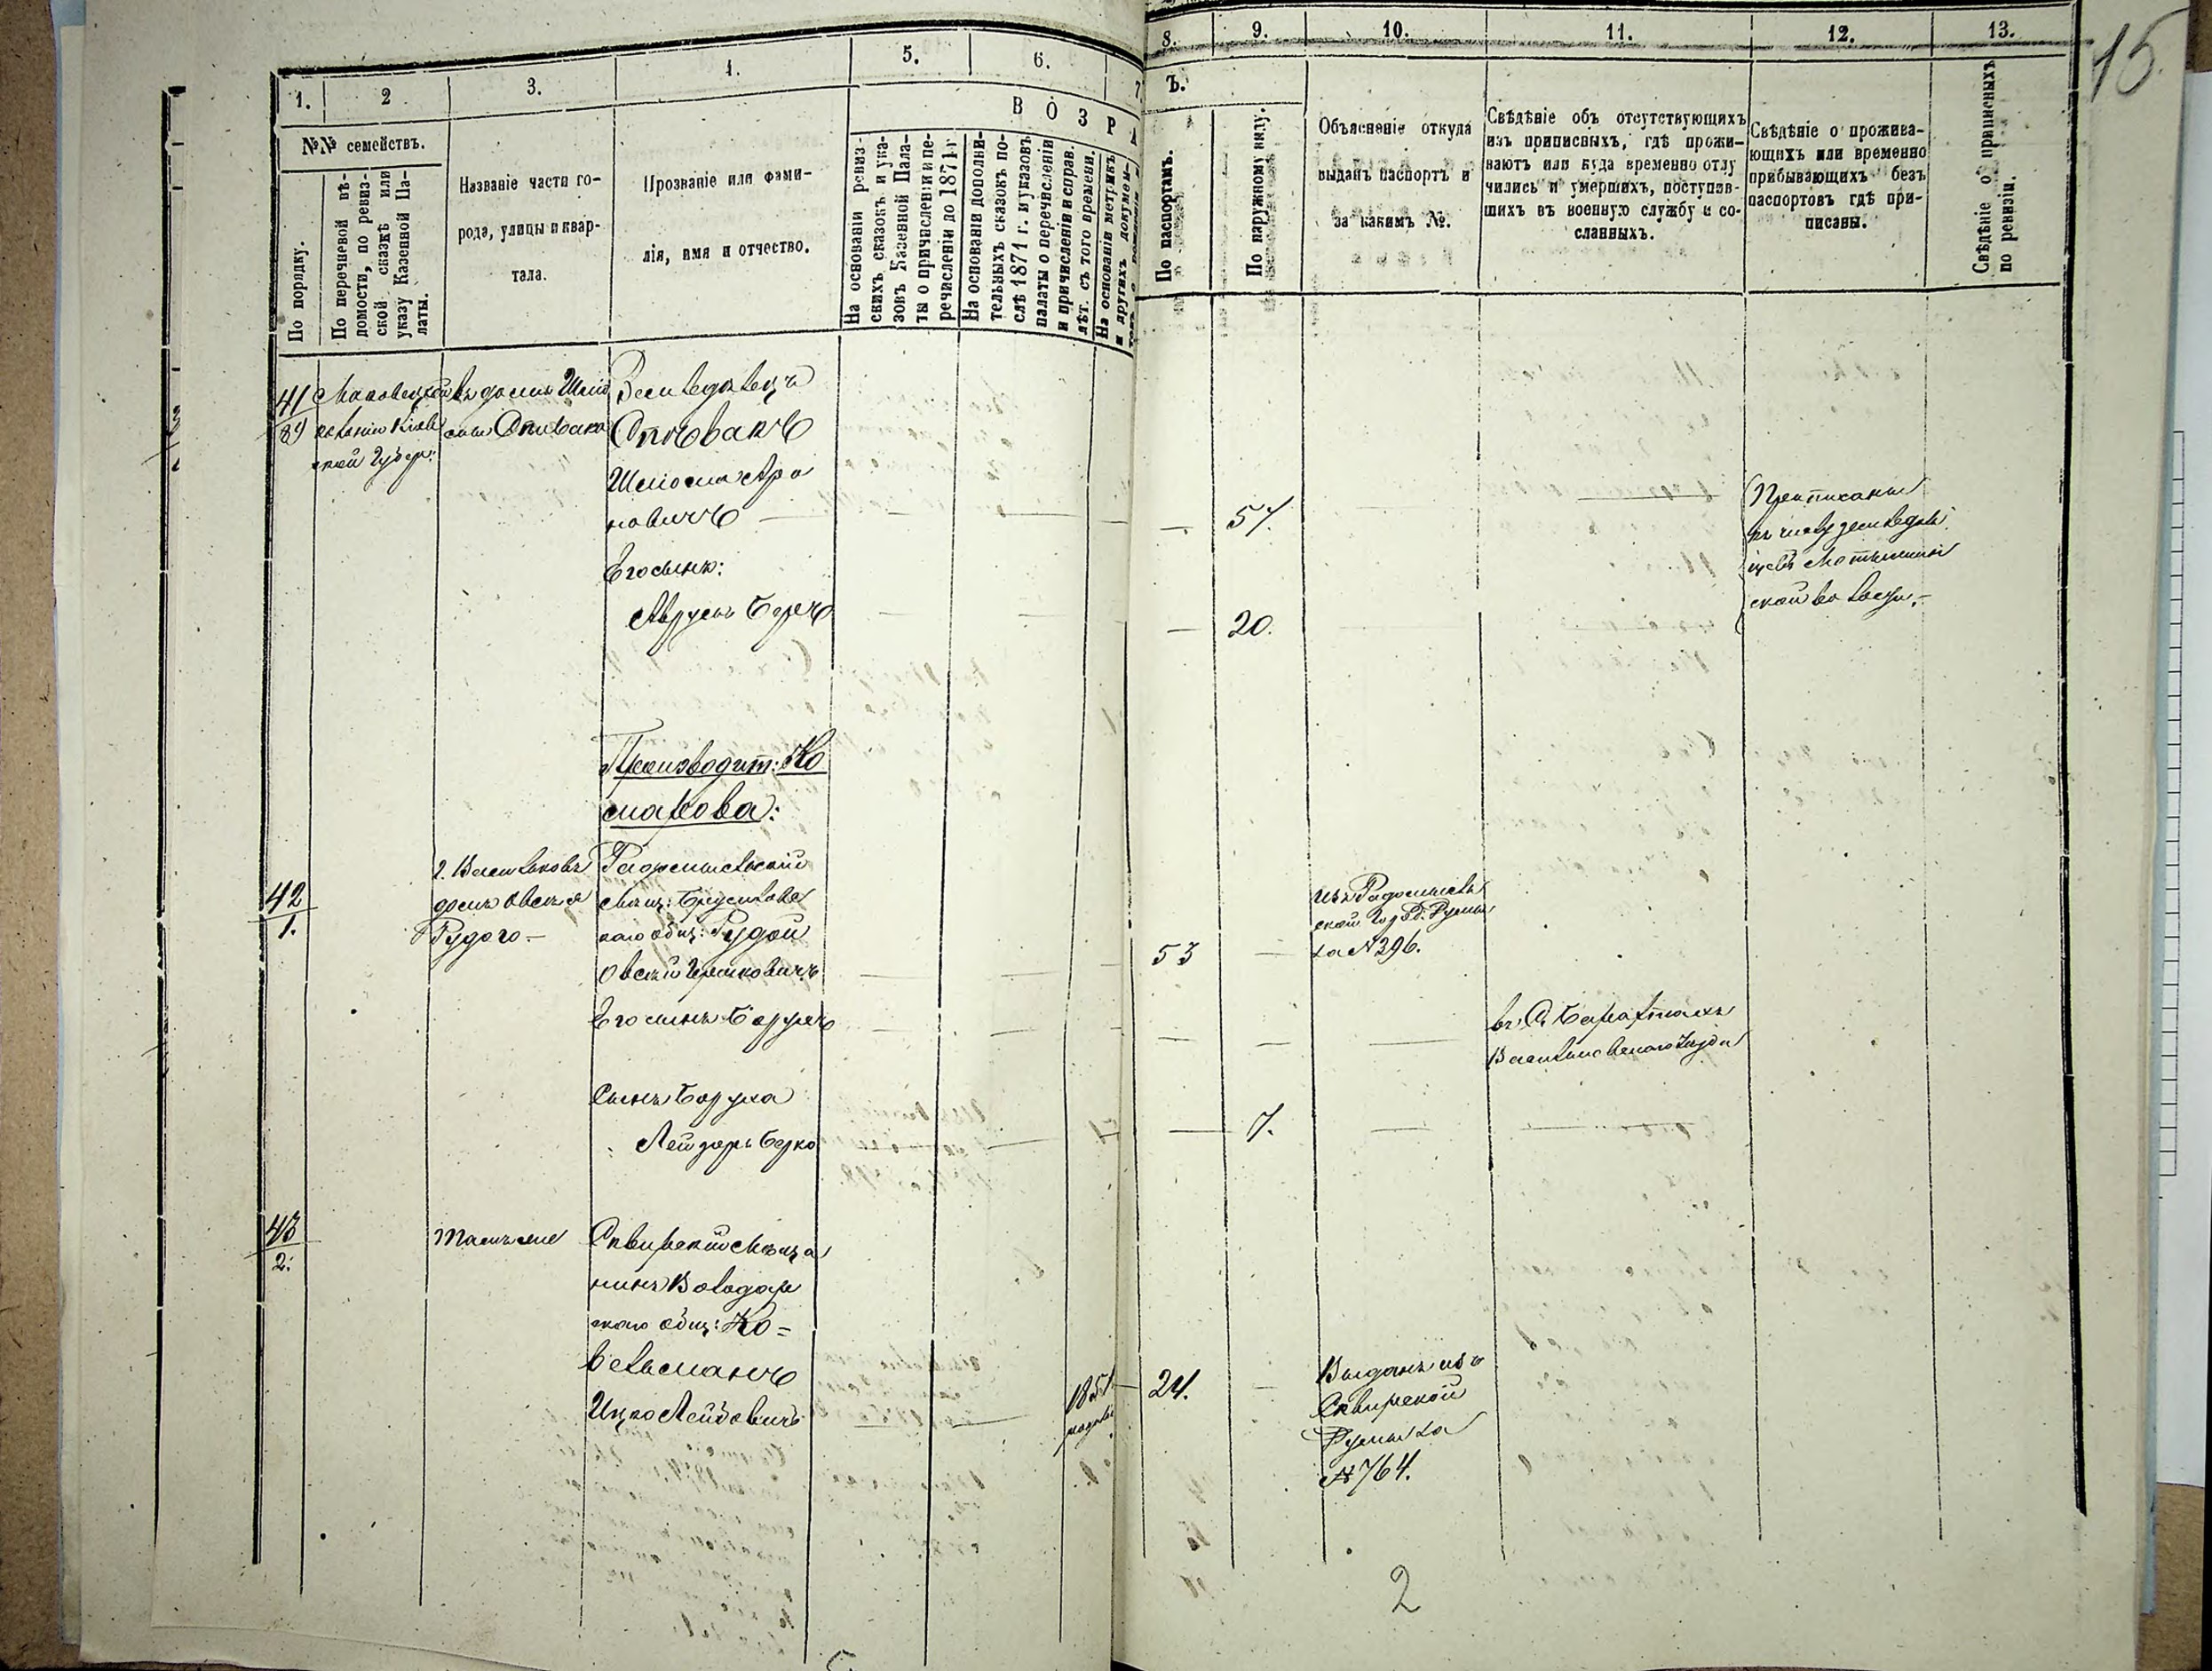 15.
1.
2
3.
4.
5.
6.
7
8.
9.
10.
11.
12.
13.
№№ семействъ.
По порядку.
По перечневой вѣ-
домости, по ревиз-
ской сказкѣ или
указу Казенной Па-
латы.
Названіе части го-
рода, улицы и квар-
тала.
Прозваніе или фами-
лія, имя и отчество.
В О З Р А
На основаніи ревиз-
скихъ сказокъ и ука-
зовъ Казенной Пала-
ты о причисленіи и пе-
речисленіи до 1871 г
На основаніи дополни-
тельныхъ сказокъ по-
слѣ 1871 г. и указовъ
палаты о перечисленіи
и причисленіи и справ.
лѣт. съ того времени.
На основаніи метрикъ
и другихъ докумен-
Ъ.
По паспортамъ.
По наружному виду.
Объясненіе откуда
выданъ паспортъ и
за какимъ №.
Свѣдѣніе объ отсутствующихъ
изъ приписныхъ, гдѣ прожи-
ваютъ или куда временно отлу
чились и умершихъ, поступив-
шихъ въ военную службу и со-
сланныхъ.
Свѣдѣніе о прожива-
ющихъ или временно
прибывающихъ безъ
паспортовъ гдѣ при-
писаны.
Свѣдѣніе о приписныхъ
по ревизіи.
41
89
ской Губер:
въ домѣ Шмо
Спивака
Земледѣлецъ
Спѣвакъ
Шмома Аро
новичъ
57.
Приписаны
въ числѣ земледѣль
цевъ
ской волости.
Его сынъ:
Аврумъ Берко
20.
Производит: Ко
макова:
42
1.
г. Васильковъ
домъ Овсея
Рудого
Радомысльскій
Мѣщ: Брусилов
каго общ: Рудой
Овсей Гершковичъ
53
изъ Радомысль
ской Гор. Думы
за №296.
Его сынъ Борухъ
въ С.
Васильковскаго уѣзда
Сынъ Боруха
Лейзоръ Берко
7.
43
2.
тамъ же
Сквирскій Мѣща
нинъ Володар
скаго общ: Ко=
вельманъ
Ицко Лейбовичъ
1851
24.
Выданъ изъ
Сквирской
Думы за
№764.
2